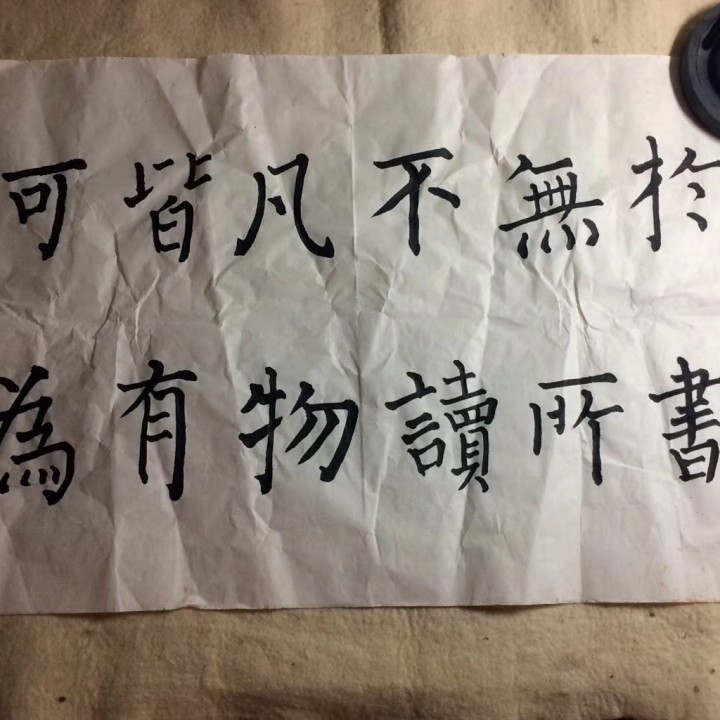 於書
無所
不讀
凡物
皆有
可為